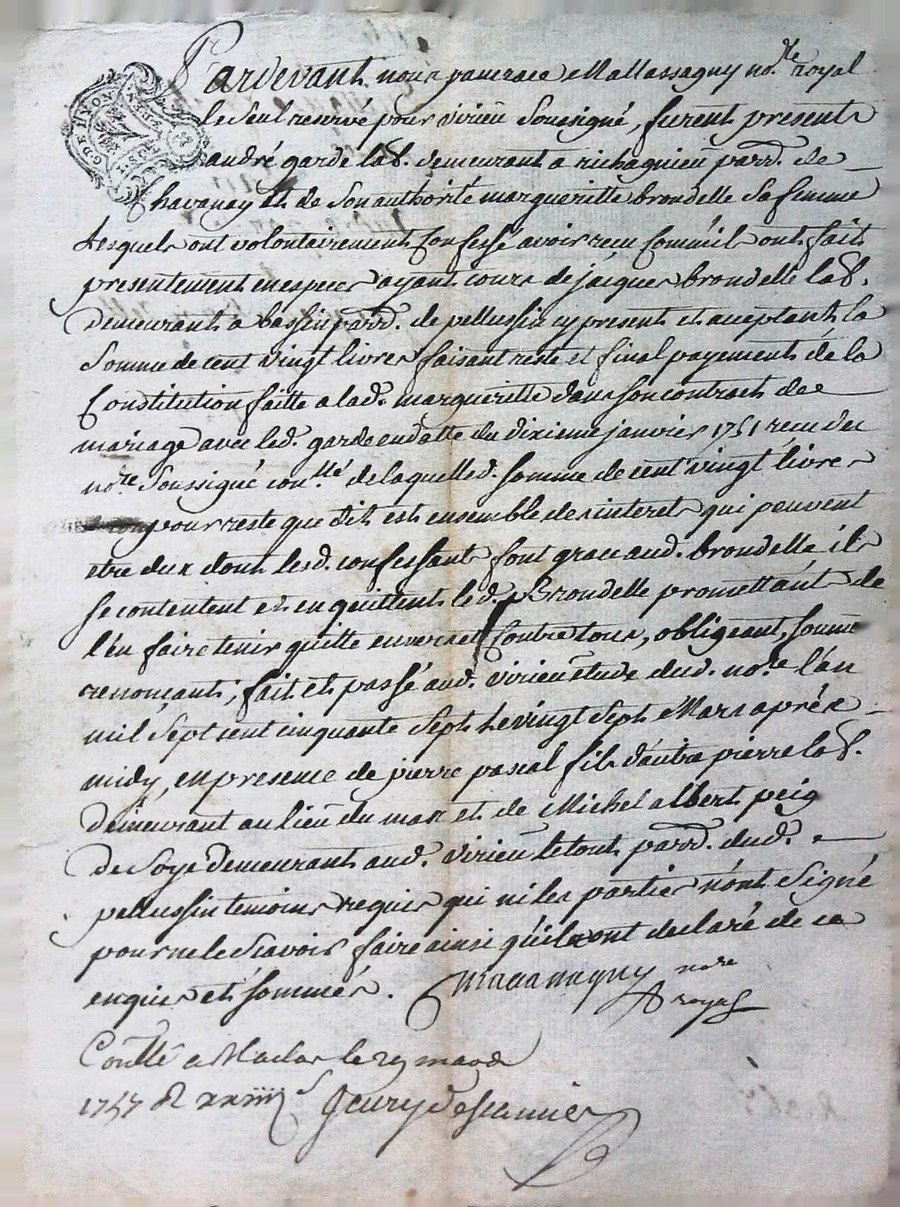 G DE LYON
Pardevant nous pancrace Mallassagny no.re royal
le seul reservé pour virieu soussigné, furent presents
andré garde lab. demeurant a richagnieu parr. de
Chavanay et de son authorité margueritte brondelle sa femme
Lesquels ont volontairement Confessé avoir reçu Comme ils ont fait
presentement en especes ayant cours de jacques brondelle lab.
demeurant a bassin parr. de pellussin cy present et acceptant la
somme de cent vingt livres faisant reste et final payement de la
Constitution faitte a lad. margueritte dans son contract de
mariage avec led. garde en datte du dixieme janvier 1751 recu du
no.re soussigné con.llé de laquelle d. somme de cent vingt livres
pour reste que dit est ensemble des interets qui peuvent
etre dux dont lesd. confessants font grace aud. brondelle ils
se contentent et en quittent led. Brondelle promettant de
l'en faire tenir quitte envers et Contre tous, obligeant, soumt
renonçant, fait et passé aud. virieu etude dud. no.re l'an
mil sept cent cinquante sept le vingt sept Mars aprés
midy, en presence de pierre pascal fils d'autre pierre lab.
demeurant au lieu du mas et de Michel albert peig
de soye demeurant aud. virieu le tout parr. dud.
pellussin temoins requis qui ni les parties n'ont signé
pour ne le scavoir faire ainsi qu'ils ont declaré de ce
enquis et sommés. Mallassagny no.re
royal
Con.llé a Maclas le 29 mars
1757 R xxiiij s